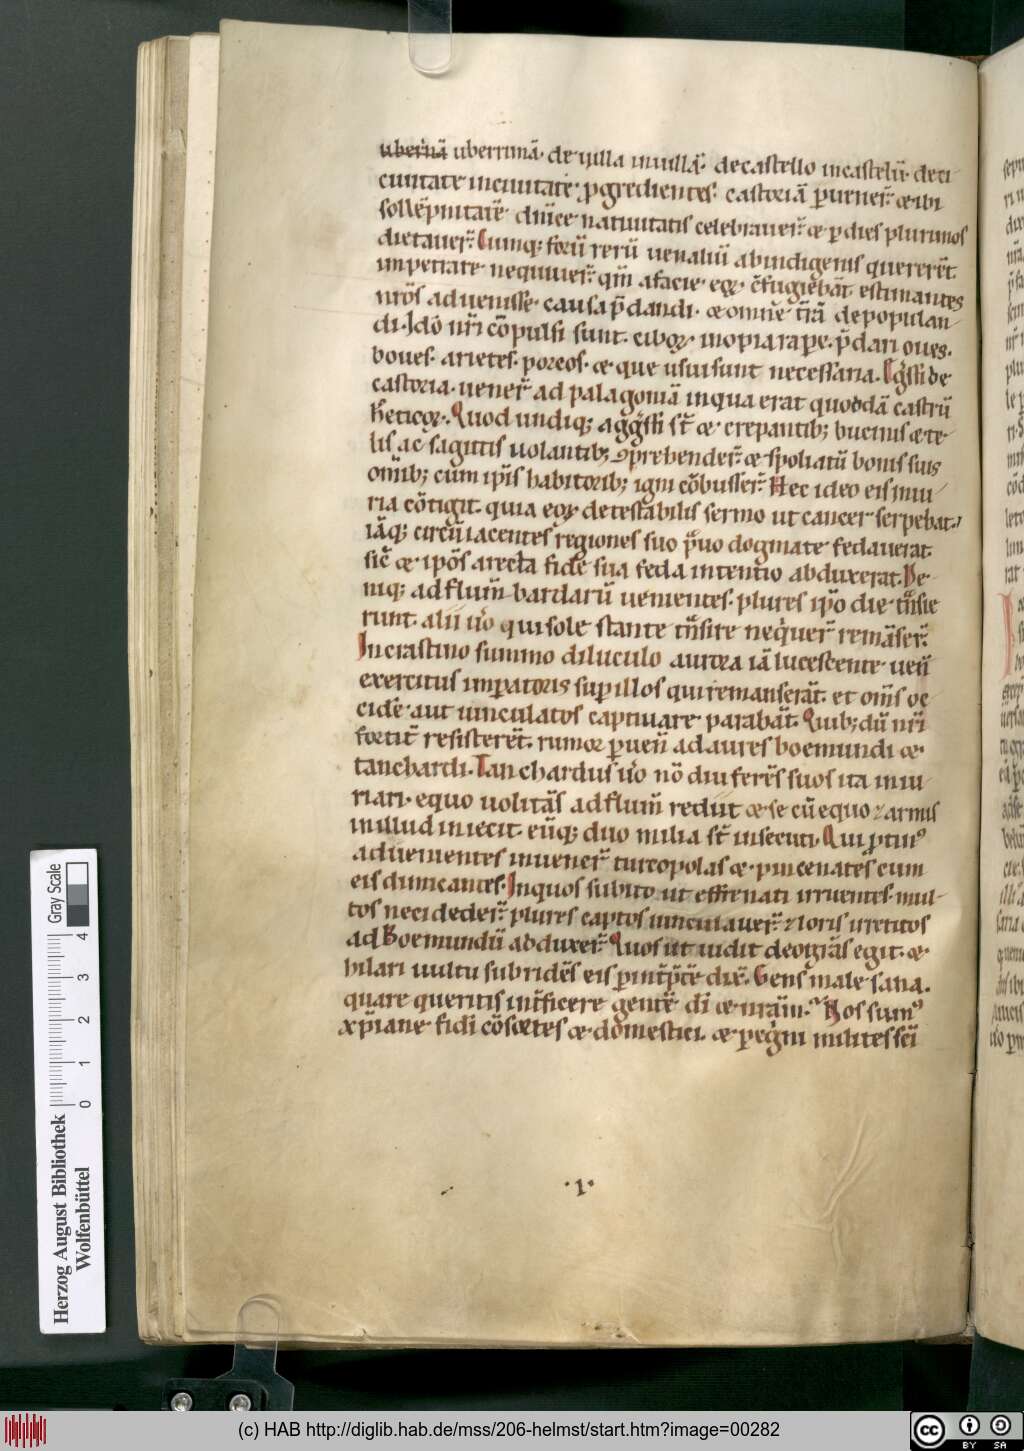 uberrimā uberrimā. de uilla inuillā. de castello incastellū. de ci-
cuitate inciuitatē. ꝓgredientes. castoriā ꝑuener̄. & ibi
sollēpnitatē dn̄ice natiuitatis celebrauer̄. & ꝑ dies plurimos
dietauer̄. Cumq; forū rerū uenaliū ab indigenis quererēt.
impetrare nequiuer̄. qm̄ a facie eoꝝ c̄fugiebāt. estimantes
nr̄os aduenisse causa p̄dandi. & omnē t̄rā depopulan-
di. Idō nr̄i cōpulsi sunt. ciboꝝ inopia rapere. p̄dari oues.
boues. arietes. porcos. & que usui sunt necessaria. Egssi de
castoria. uener̄ ad palagoniā in qua erat quoddā castrū
h̄eticoꝝ. Quod undiq; aggssi st̄. & crepantib; bucinis & te-
lis ac sagittis uolantib; ꝯprehender̄. & spoliatū bonis suis
om̄ib; cum ip̄is habitorib; igni cōbusser̄. Hec ideo eis iniu-
ria cōtigit. quia eoꝝ detestabilis sermo ut cancer serpebat.
iāq; circūiacentes regiones suo p̄uo dogmate fedauerat.
sic̄ & ip̄os a recta fide sua feda intentio abduxerat. De-
niq; ad flum̄ bardarū uenientes. plures ip̄o die tn̄sie
runt. alii uͦo qui sole stante tn̄sire neqͥuer̄ remāser̄.
In crastino summo diluculo aurora iā lucescente uen̄
exercitus imꝑatoris suꝑ illos qui remanserāt. et om̄s oc
cidē aut uinculatos captiuare parabāt. Quib; dū nr̄i
fortit̄ resisterēt. rumor ꝑuen̄ ad aures boemundi &
tanchardi. Tanchardus uͦo nō diu ferēs suos ita iniu-
riari. equo uolitās ad flum̄ rediit & se cū equo ⁊ armis
in illud iniecit. eūq; duo milia st̄ insecuti. Qui ꝓtinꝰ
aduenientes inuener̄ turcopolas & pincenates cum
eis dimicantes. In quos subito ut effrenati irruentes. mul-
tos neci deder̄. plures captos uinculauer̄. ⁊ loris irretitos
ad Boemundū abduxer̄. Quos ut uidit deo gr̄as egit. &
hilari uultu subridēs eis ꝑ int̄p̄tē dix̄. Gens male sana.
quare queritis int̄ficere gentē di & nrām. Nos sumꝰ
xp̄iane fidi cōsortes & domestici. & ꝑegͥni milites sc̄i
.1.
Herzog August Bibliothek
Wolfenbüttel
0 1 2 3 4
Gray Scale
(c) HAB http://diglib.hab.de/mss/206-helmst/start.htm?image=00282
cc BY SA